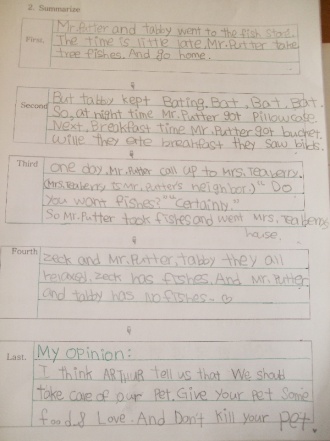 2. Summarize
First,
Mr. Putter and tabby went to the fish store.
The time is little late. Mr. Putter take
tree fishes. And go home.
Second
But tabby kept Bating. Bat, Bat, Bat.
So, at night time Mr. Putter got Pillowcase
Next, Breakfast time Mr. Putter got bucket.
Wille they ate breakfast they saw birds.
Third
one day, Mr. Putter call up to Mrs. Teaberry.
(Mrs. Teaberry is Mr. Putter's neighbor.) "Do
you want fishes?" "certainly."
So Mr. Putter took fishes and went Mrs, Tea berry
house.
Fourth
zeck and Mr. Putter, tabby they all
zeck has fishes. And Mr. Putter
and tabby has no fishes.
Last.
My opinion:
I think ARTHUR tell us that We should
take care of our Pet. Give Your Pet Some
food & Love. And Don't kill your pet.